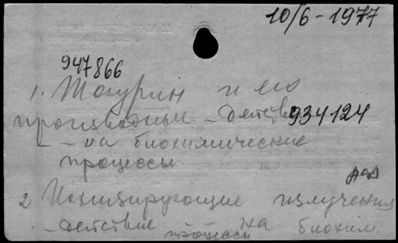 10/6-1977
947866
1. Таурин и его
производные - действие 934124
- на биохимические
процессы
2 Ионизирующие излучения
- действие на биохим.
процессы